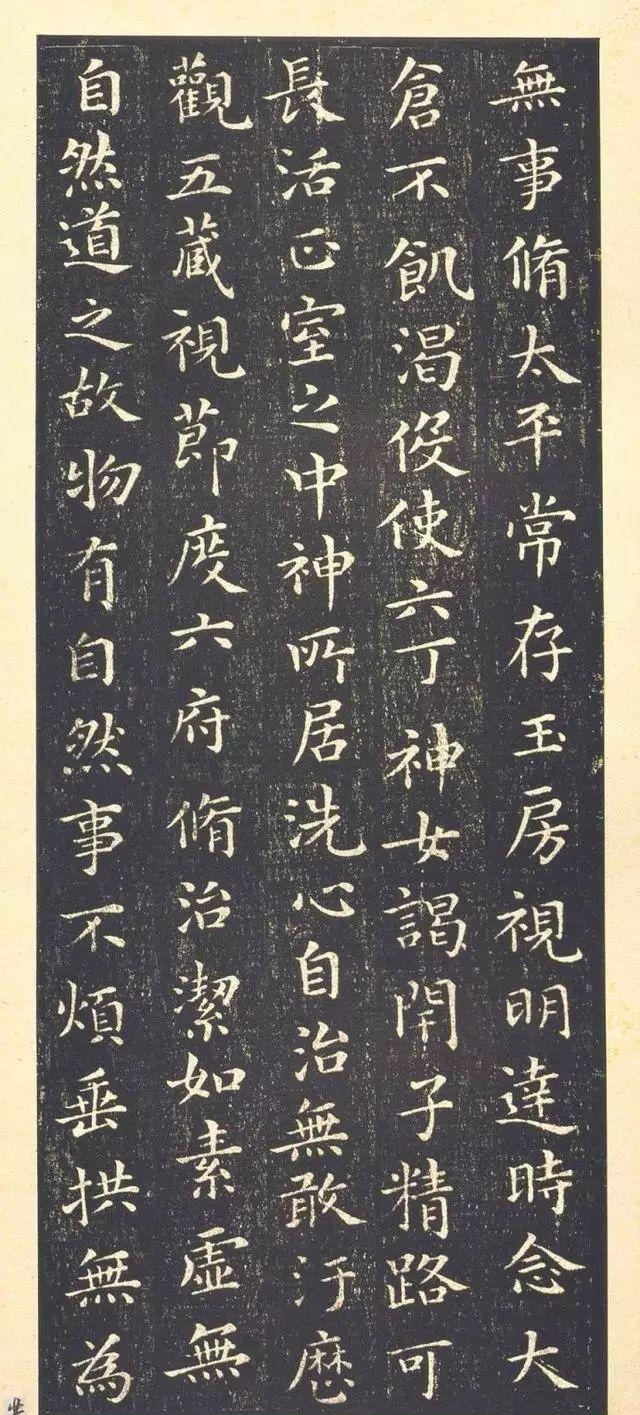 無事脩太平常存玉房視明達時念大
倉不飢渴伇使六丁神女謁閇子精路可
長活正室之中神所居洗心自治無敢汙歷
觀五藏視節度六府脩治潔如素虛無
自然道之故物有自然事不煩垂拱無為